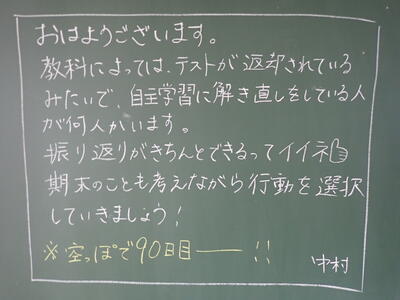 おはようございます。
教科によっては、テストが返却されている
みたいで、自主学習に解き直しをしている人
が何人かいます。
振り返りがきちんとできるってイイネ👍
期末のことも考えながら行動を選択
していきましょう!
※空っぽで90日目――!!
中村